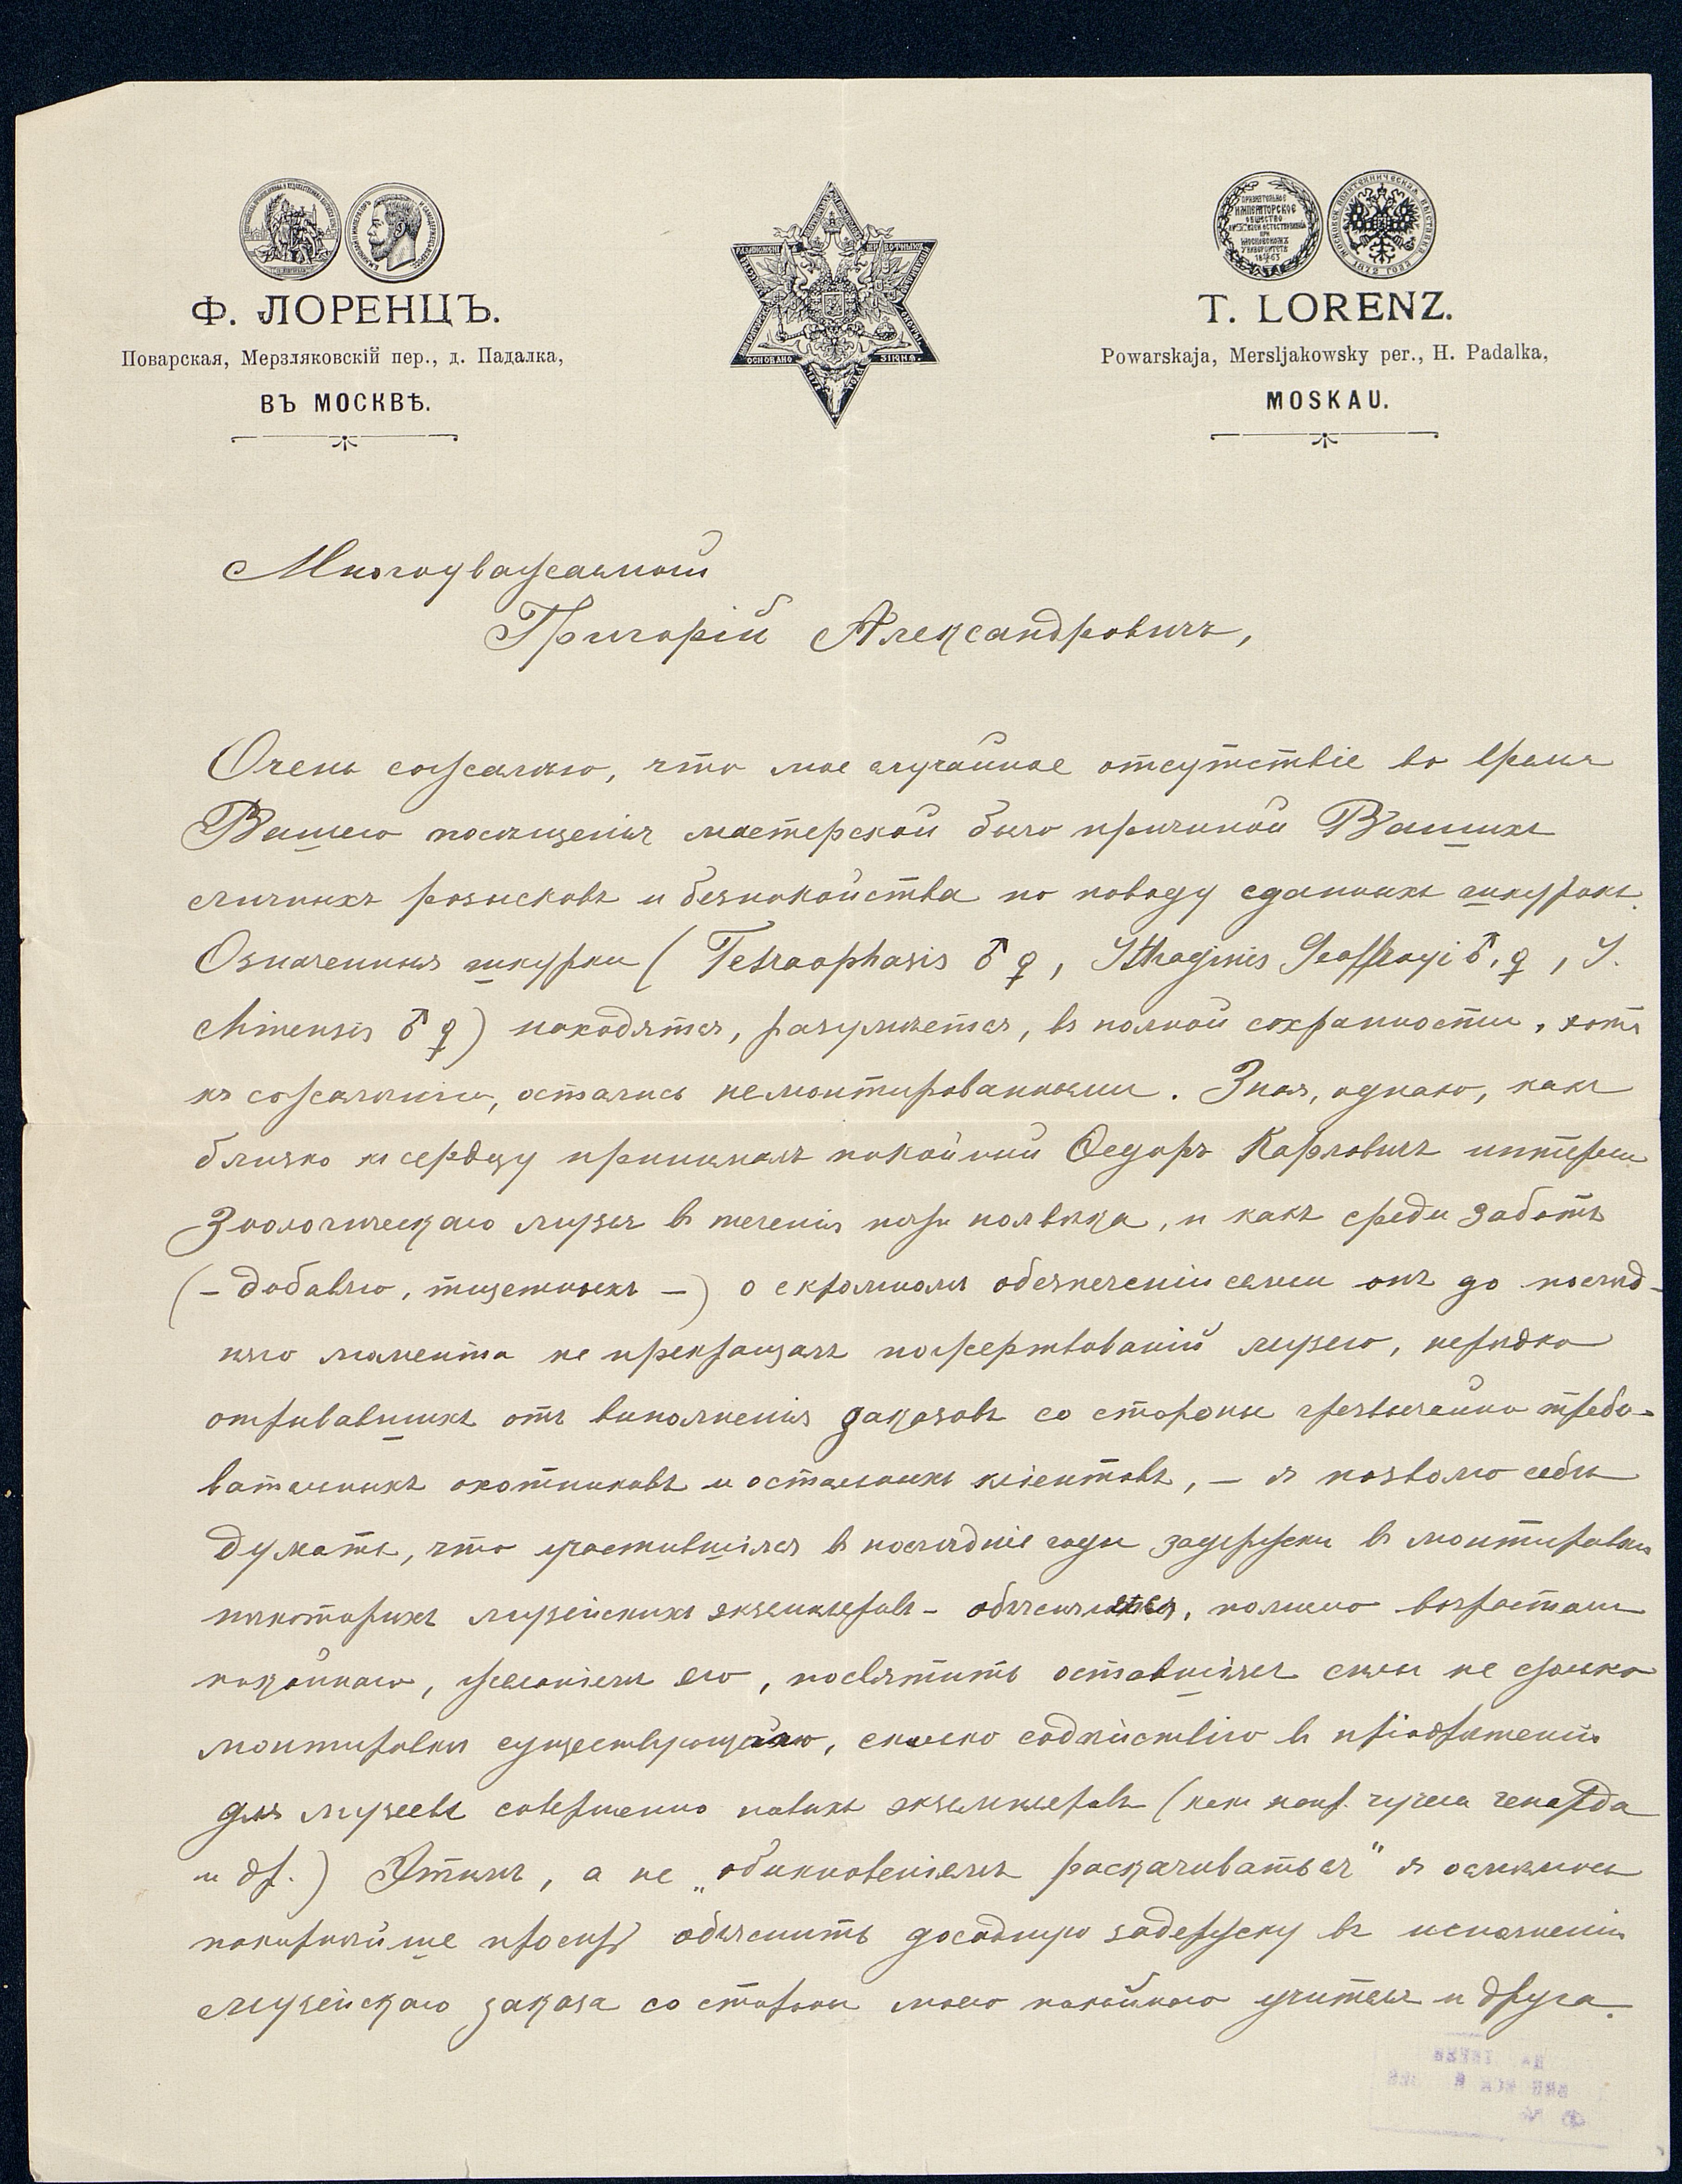 Ф. ЛОРЕНЦЪ.
Поварская, Мерзляковскій пер., д. Падалка,
ВЪ МОСКВѢ.
ПРИЗНАТЕЛЬНОЕ
ИМПЕРАТОРСКОЕ
ОБЩЕСТВО
ПРИ
МОСКОВСКОМЪ
УНИВЕРСИТЕТѢ
1863
T. LORENZ.
Powarskaja, Mersljakowsky per., H. Padalka,
MOSKAU.
ОСНОВАНО
Многоуважаемый
Григорій Александровичъ,
Очень сожалѣю, что мое случайное отсутствіе во время
Вашего посѣщенія мастерской было причиной Вашихъ
личныхъ розысковъ и безпокойства по поводу сданныхъ шкурокъ.
Означенныя шкурки (Tetraophasis ♂ ♀, Ithaginis Geoffroyi ♂, ♀, I.
chinensis ♂ ♀) находятся, разумѣется, въ полной сохранности, хотя
къ сожалѣнію, остались немонтированными. Зная, однако, какъ
близко къ сердцу принималъ покойный Ѳедоръ Карловичъ интересы
Зоологическаго музея въ теченія полвѣка, и какъ среди заботъ
(– добавлю, тщетныхъ –) о скромномъ обезпеченіи семьи онъ до послѣд-
няго момента не прекращалъ пожертвованій музею, нерѣдко
отрывавшихъ отъ выполненія заказовъ со стороны чрезвычайно требо-
вательныхъ охотниковъ и остальныхъ кліентовъ, – я позволю себѣ
думать, что участившіяся въ послѣдніе годы задержки въ монтировкѣ
нѣкоторыхъ музейскихъ экземпляровъ – объясняются, помимо возрастомъ
покойнаго, желаніемъ его, посвятить оставшіяся силы не столько
монтировкѣ существующаго, сколько содѣйствію въ пріобрѣтеніи
для музеевъ совершенно новыхъ экземпляровъ (какъ напр. чучела гепарда
и др.) Этимъ, а не „обыкновеніемъ раскачиваться" я осмѣлюсь
покорнѣйше просить объяснить досадную задержку въ исполненіи
музейскаго заказа со стороны моего покойнаго учителя и друга.